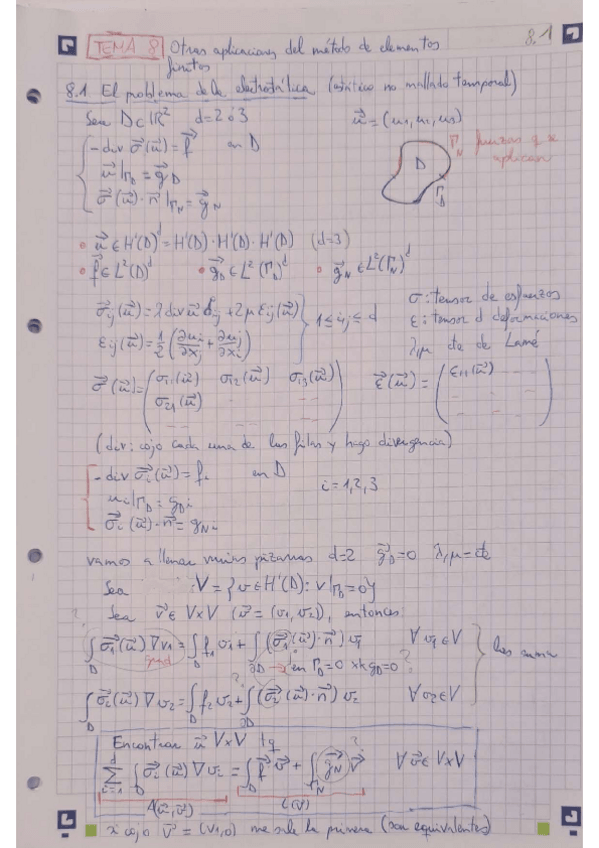 8.1
TEMA 8 Otras aplicaciones del método de elementos
finitos
8.1 El problema de la elastostática (estático no mallado temporal)
Sea D⊂ℝ² d=2 ó 3 u⃗=(u₁,u₂,u₃)
-div σ⃗(u⃗)=f⃗ en D
u⃗|Γ_D = g⃗_D
σ⃗(u⃗)·n⃗|Γ_N = g⃗_N
Γ_N fuerzas q se
aplican
D
Γ_D
• u⃗∈H¹(D)^d = H¹(D)·H¹(D)·H¹(D) (d=3)
• f⃗∈L²(D)^d • g⃗_D∈L²(Γ_D)^d • g⃗_N∈L²(Γ_N)^d
σ⃗ij(u⃗)=λ div u⃗ δij + 2μ εij(u⃗) 1≤i,j≤d
εij(u⃗)=1/2(∂ui/∂xj + ∂uj/∂xi)
σ: tensor de esfuerzos
ε: tensor d deformaciones
λ,μ cte de Lamé
σ⃗(u⃗)=(σ₁₁(u⃗) σ₁₂(u⃗) σ₁₃(u⃗) ε⃗(u⃗)=(ε₁₁(u⃗)
σ₂₁(u⃗)
(div: cojo cada una de las filas y hago divergencia)
-div σ⃗i(u⃗)=fi en D
ui|Γ_D = g_Di i=1,2,3
σ⃗i(u⃗)·n⃗ = g_Ni
vamos a llenar varias pizarras d=2 g⃗_D=0 λ,μ=cte
Sea V={v∈H¹(D): v|Γ_D=0}
Sea v⃗∈V×V (v⃗=(v₁,v₂)), entonces:
? ∫_D σ⃗₁(u⃗)∇v₁ = ∫_D f₁v₁ + ∫_∂D (σ⃗₁(u⃗)·n⃗)v₁ ∀v₁∈V
grad → en Γ_D=0 xk g_D=0 ?
los sumo
∫_D σ⃗₂(u⃗)∇v₂ = ∫_D f₂v₂ + ∫_∂D (σ⃗₂(u⃗)·n⃗)v₂ ∀v₂∈V
Encontrar u⃗ V×V tq
∑_{i=1}^d ∫_D σ⃗i(u⃗)∇vi = ∫_D f⃗v⃗ + ∫_Γ_N g⃗_N v⃗ ? ∀v⃗∈V×V
A(u⃗,v⃗) L(v⃗)
si cojo v⃗=(v₁,0) me sale la primera (son equivalentes)